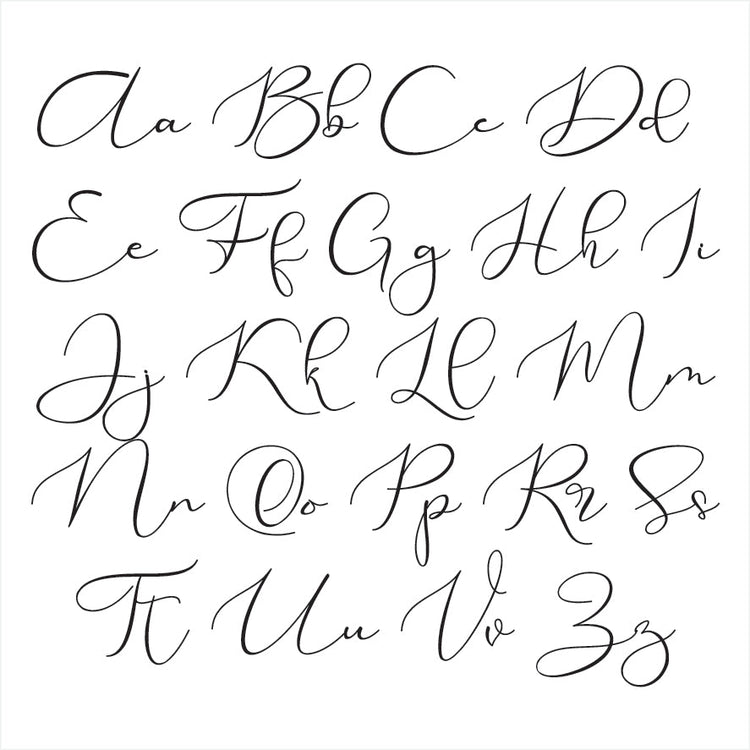 Aa Bb Cc Dd
Ee Ff Gg Hh Ii
Jj Kk Ll Mm
Nn Oo Pp Rr Ss
Tt Uu Vv Zz